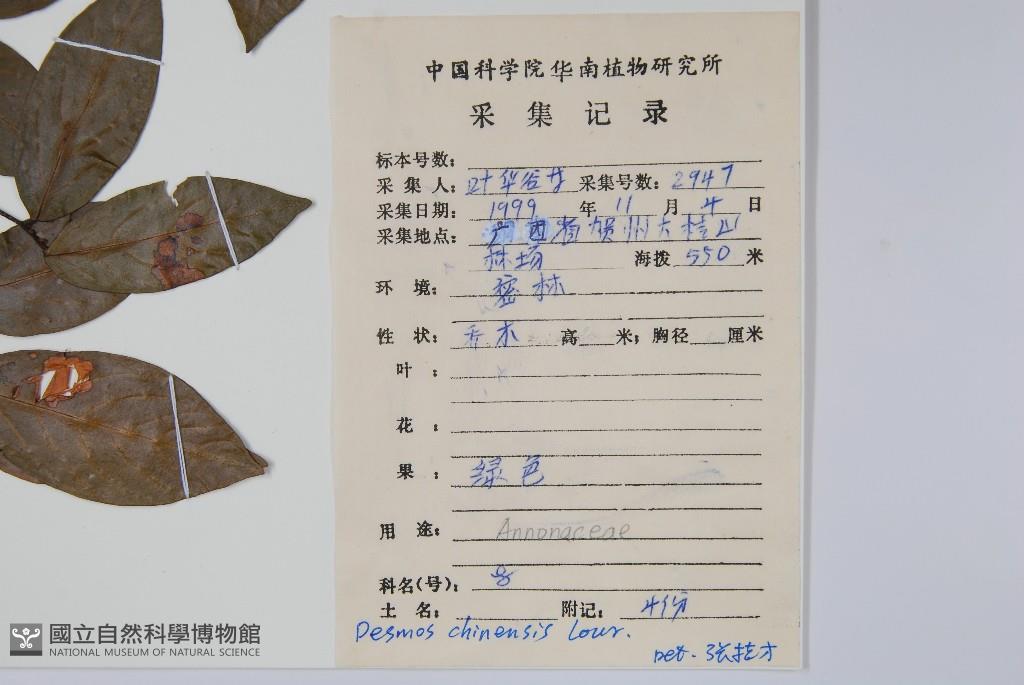 中国科学院华南植物研究所
采集记录
标本号数：
采集人：叶华谷 采集号数：2947
采集日期：1999年11月4日
采集地点：广西省贺州大桂山
林场 海拨 550 米
环境：密林
性状：乔木 高 米；胸径 厘米
叶：
花：
果：绿色
用途：Annonaceae
科名（号）：8
土名： 附记：4份
Desmos chinensis Lour.
Det. 张
國立自然科學博物館
NATIONAL MUSEUM OF NATURAL SCIENCE